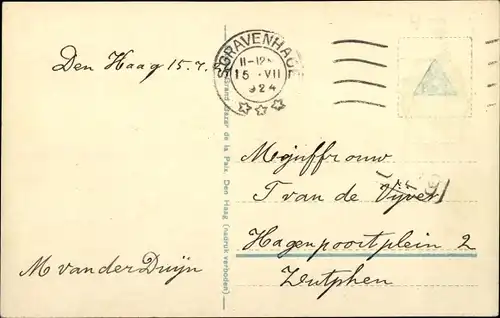 'SGRAVENHAGE
11-12
15 VII
924
Den Haag 15.7.
Grand Bazar de la Paix. Den Haag (nadruk verboden)
Mejuffrouw
T van de Vyver
Hagenpoortplein 2
Zutphen
M van der Duijn